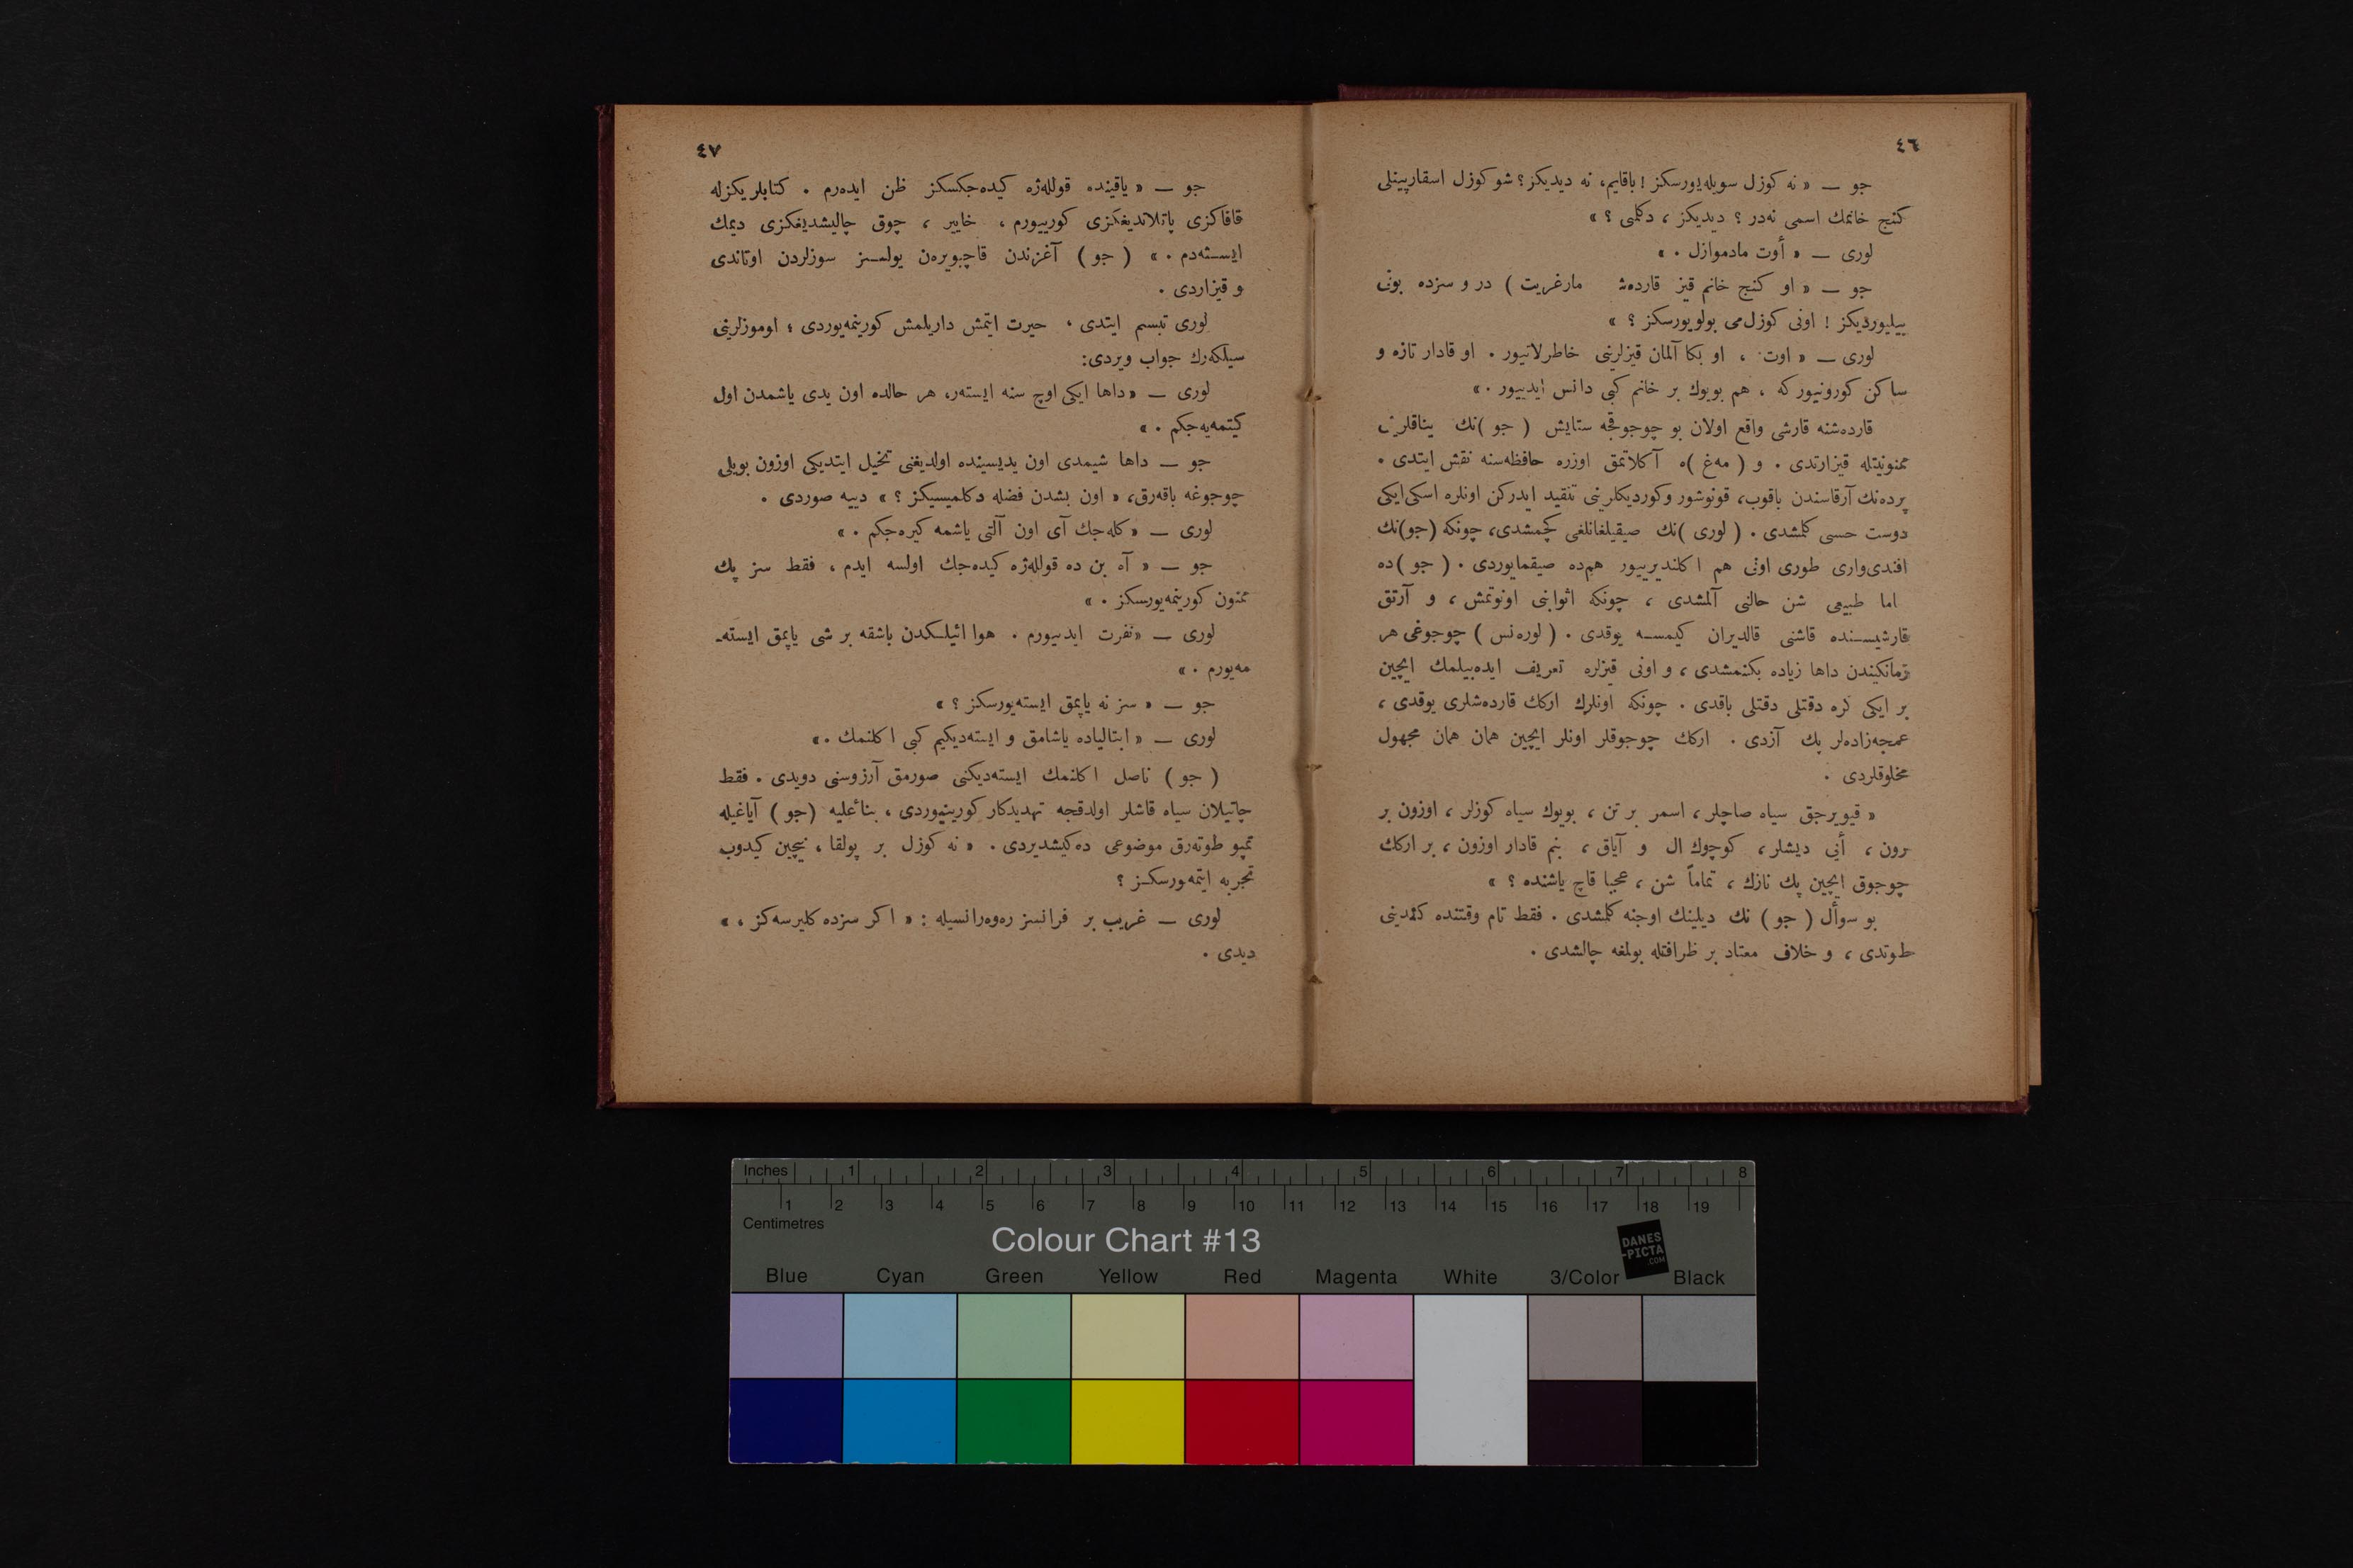 ٤٦
جو — « نه كوزل سويله‌يورسكز ! باقايم، نه ديديكز؟ شو كوزل اسقارپينلى
كنج خانمك اسمى نه‌در ؟ ديديكز ، دكلمى ؟ »
لورى — « أوت مادموازل . »
جو — « او كنج خانم قيز قارده‌شم مارغريت ) در و سزده بونى
بيليورديكز ! اونى كوزل‌مى بولويورسكز ؟ »
لورى — « اوت ، او بكا آلمان قيزلرينى خاطرلاتيور . او قادار تازه و
ساكن كورونيوركه ، هم بويوك بر خانم كبى دانس ايدييور . »
قارده‌شنه قارشى واقع اولان بو چوجوقجه ستايش ( جو )نك يناقلرينى
ممنونيتله قيزارتدى . و ( مه‌غ )ه آكلاتمق اوزره حافظه‌سنه نقش ايتدى .
پرده‌نك آرقاسندن باقوب، قونوشور وكورديكلرينى تنقيد ايدركن اونلره اسكى‌ايكى
دوست حسى كلمشدى . ( لورى )نك صيقيلغانلغى كچمشدى، چونكه (جو)نك
افندى‌وارى طورى اونى هم اكلنديرييور هم‌ده صيقمايوردى . ( جو )ده
اما طبيعى شن حالنى آلمشدى ، چونكه اثوابنى اونوتمش ، و آرتق
قارشيسنده قاشنى قالديران كيمسه يوقدى . ( لوره‌نس ) چوجوغى هر
زمانكيندن داها زياده بكنمشدى ، و اونى قيزلره تعريف ايده‌بيلمك ايچين
بر ايكى كره دقتلى دقتلى باقدى . چونكه اونلرك اركك قارده‌شلرى يوقدى ،
عمجه‌زاده‌لر پك آزدى . اركك چوجوقلر اونلر ايچين همان همان مجهول
مخلوقلردى .
« قيويرجق سياه صاچلر ، اسمر بر تن ، بويوك سياه كوزلر ، اوزون بر
برون ، أيى ديشلر ، كوچوك ال و آياق ، بنم قادار اوزون ، بر اركك
چوجوق ايچين پك نازك ، تماماً شن ، عجبا قاچ ياشنده ؟ »
بو سوأل ( جو ) نك ديلينك اوجنه كلمشدى . فقط تام وقتنده كندينى
طوتدى ، و خلاف معتاد بر ظرافتله بولمغه چالشدى .
٤٧
جو — « ياقينده قولله‌ژه كيده‌جكسكز ظن ايده‌رم . كتابلريكزله
قافاكزى پاتلاتديغكزى كورييورم ، خاير ، چوق چاليشديغكزى ديمك
ايسته‌دم . » ( جو ) آغزندن قاچيويره‌ن يولسز سوزلردن اوتاندى
و قيزاردى .
لورى تبسم ايتدى ، حيرت ايتمش داريلمش كورينمه‌يوردى ؛ اوموزلرينى
سيلكه‌رك جواب ويردى:
لورى — « داها ايكى اوچ سنه ايستر، هر حالده اون يدى ياشمدن اول
كيتمه‌يه‌جكم . »
جو — داها شيمدى اون يديسينده اولديغنى تخيل ايتديكى اوزون بويلى
چوجوغه باقه‌رق، « اون بشدن فضله دكلميسيكز ؟ » دييه صوردى .
لورى — « كله‌جك آى اون آلتى ياشمه كيره‌جكم . »
جو — « آه بن ده قولله‌ژه كيده‌جك اولسه ايدم ، فقط سز پك
ممنون كورينمه‌يورسكز . »
لورى — «نفرت ايدييورم . هوا ائيلكدن باشقه بر شى ياپمق ايسته-
مه‌يورم . »
جو — « سز نه ياپمق ايسته‌يورسكز ؟ »
لورى — « ايتالياده ياشامق و ايسته‌ديكيم كبى اكلنمك . »
( جو ) ناصل اكلنمك ايسته‌ديكنى صورمق آرزوسنى دويدى . فقط
چاتيلان سياه قاشلر اولدقجه تهديدكار كورينيوردى ، بنأعليه (جو ) آياغيله
تمپو طوته‌رق موضوعى ده‌كيشديردى . « نه كوزل بر پولقا ، نيچين كيدوب
تجربه ايتمه‌يورسكز ؟
لورى — غريب بر فرانسز ره‌وه‌رانسيله : « اكر سزده كليرسه‌كز ، »
ديدى .
Inches 1 2 3 4 5 6 7 8
1 2 3 4 5 6 7 8 9 10 11 12 13 14 15 16 17 18 19
Centimetres
Colour Chart #13
DANES
-PICTA
.COM
Blue Cyan Green Yellow Red Magenta White 3/Color Black